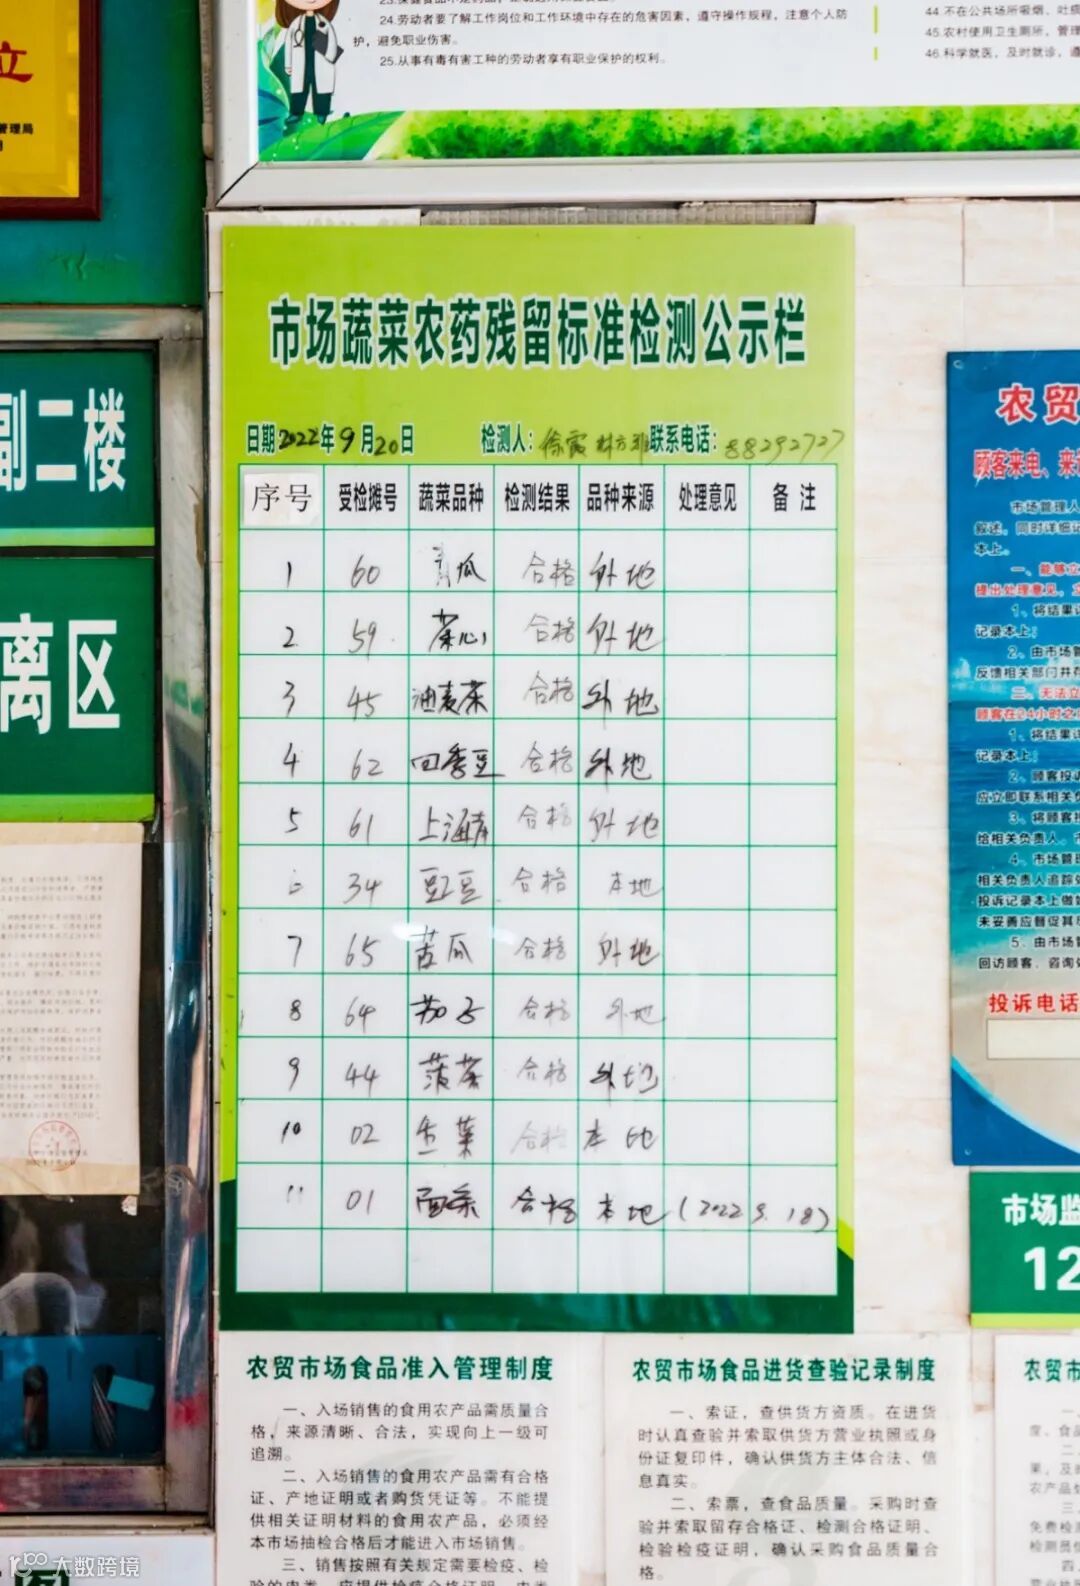 24.劳动者要了解工作岗位和工作环境中存在的危害因素，遵守操作规程，注意个人防
护，避免职业伤害。
25.从事有毒有害工种的劳动者享有职业保护的权利。
44.不在公共场所吸烟、吐痰
45.农村使用卫生厕所，管理
46.科学就医，及时就诊，遵
立
管理局
副二楼
离区
市场蔬菜农药残留标准检测公示栏
日期2022年9月20日 检测人：徐霞 联系电话：88292727
序号 受检摊号 蔬菜品种 检测结果 品种来源 处理意见 备注
1 60 青瓜 合格 外地
2 59 菜心 合格 外地
3 45 油麦菜 合格 外地
4 62 四季豆 合格 外地
5 61 上海青 合格 外地
34 豇豆 合格 本地
7 65 苦瓜 合格 外地
8 64 茄子 合格 外地
9 44 菠菜 合格 外地
10 02 生菜 合格 本地
11 01 面条 合格 本地 (2022.9.18)
农贸
顾客来电、来
市场管理人
叙述，同时详细记
本上。
一、能够立
提出处理意见，立
1、将结果详
记录本上；
2、由市场管
反馈相关部门并存
二、无法立
顾客在24小时之
1、将结果详
记录本上；
2、顾客投诉
应立即联系相关负
3、将顾客投
给相关负责人，市
4、市场管
相关负责人追踪处
投诉记录本上做好
未妥善应督促其
5、由市场管
回访顾客，咨询处
投诉电话
市场监
12
农贸市场食品准入管理制度
一、入场销售的食用农产品需质量合
格，来源清晰、合法，实现向上一级可
追溯。
二、入场销售的食用农产品需有合格
证、产地证明或者购货凭证等。不能提
供相关证明材料的食用农产品，必须经
本市场抽检合格后才能进入市场销售。
三、销售按照有关规定需要检疫、检
农贸市场食品进货查验记录制度
一、索证，查供货方资质。在进货
时认真查验并索取供货方营业执照或身
份证复印件，确认供货方主体合法、信
息真实。
二、索票，查食品质量。采购时查
验并索取留存合格证、检测合格证明、
检验检疫证明，确认采购食品质量合
格。
农贸市
度、食品
果，及时
农产品处
免费检测
检测员
大数跨境